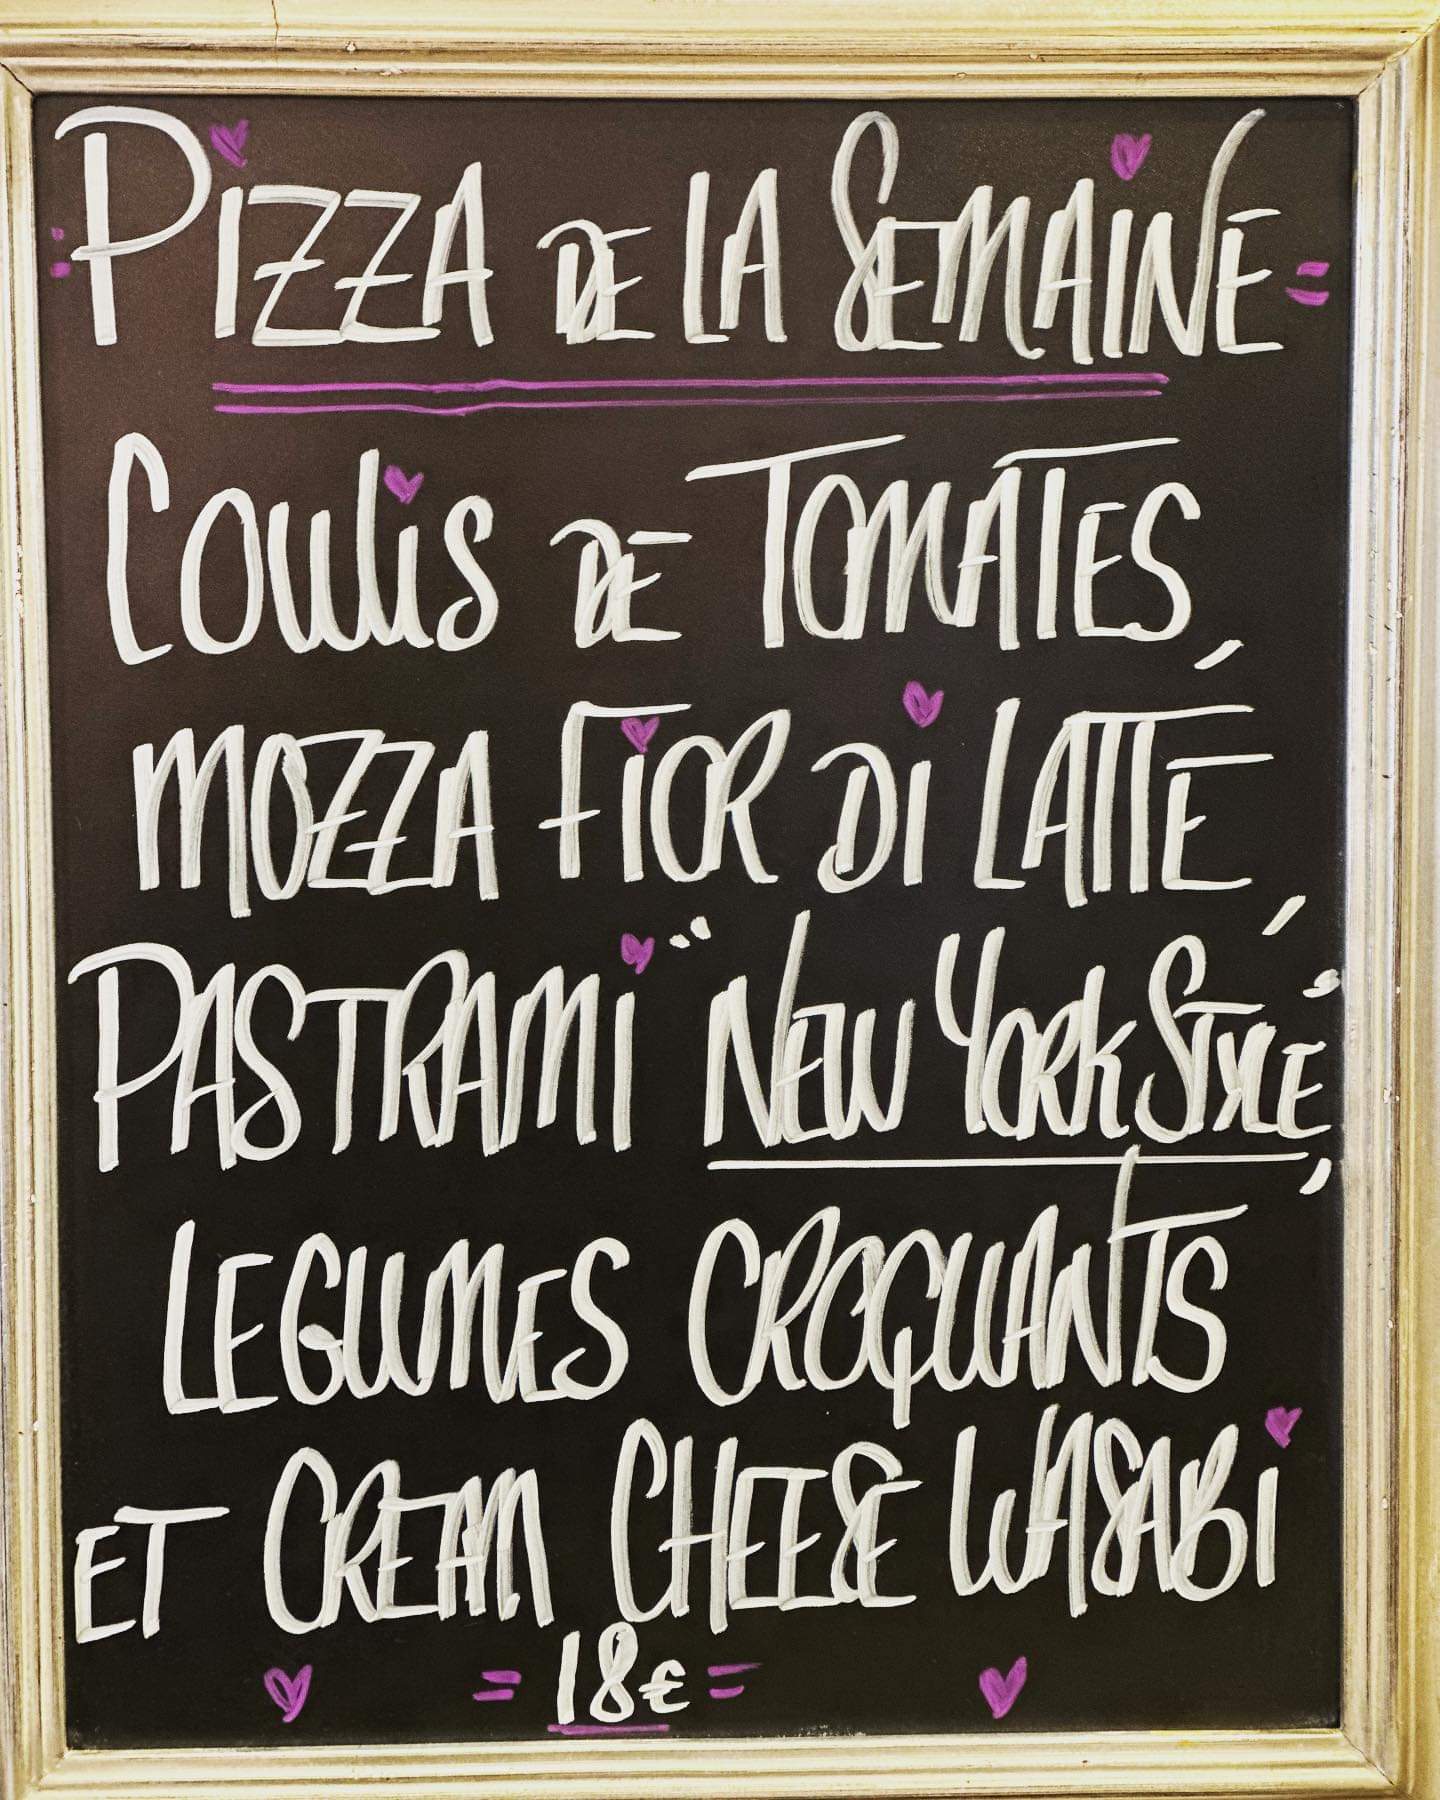 PIZZA DE LA SEMAINE
COULIS DE TOMATES,
MOZZA FIOR DI LATTE,
PASTRAMI "NEW YORK STYLE",
LEGUMES CROQUANTS
ET CREAM CHEESE WASABI
18€